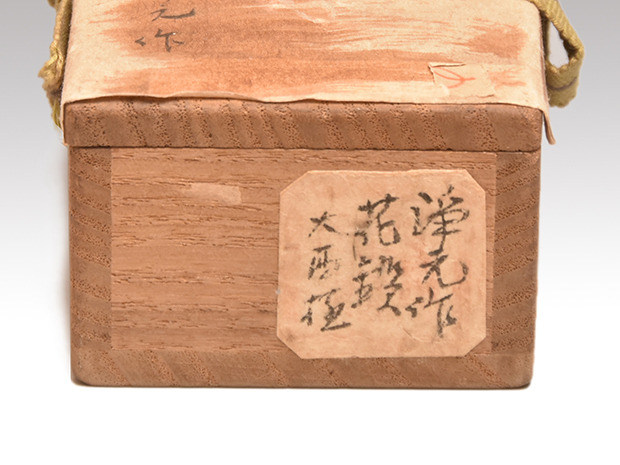 元作
淨元作
花鐶
大西極